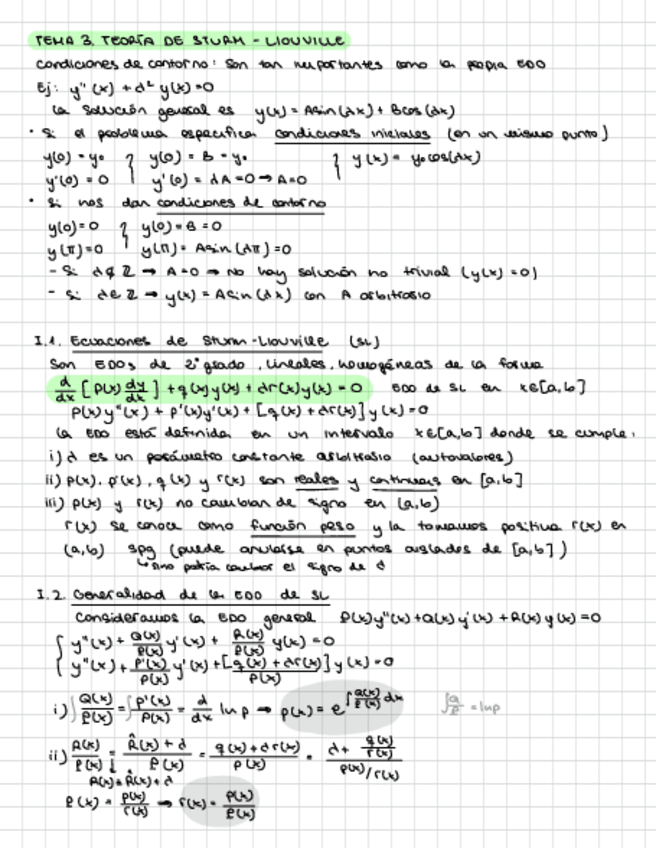 TEMA 3. TEORÍA DE STURM - LIOUVILLE
Condiciones de contorno: Son tan importantes como la propia EDO
Ej: y''(x) + λ² y(x) = 0
La solución general es y(x) = A sin(λx) + B cos(λx)
• Si el problema especifica condiciones iniciales (en un mismo punto)
y(0) = y₀ } y(0) = B = y₀ } y(x) = y₀ cos(λx)
y'(0) = 0 } y'(0) = λA = 0 → A = 0
• Si nos dan condiciones de contorno
y(0) = 0 } y(0) = B = 0
y(π) = 0 } y(π) = A sin(λπ) = 0
- Si λ∉ℤ → A = 0 → No hay solución no trivial (y(x) = 0)
- Si λ∈ℤ → y(x) = A sin(λx) con A arbitrario
I.1. Ecuaciones de Sturm-Liouville (SL)
Son EDOs de 2º grado, lineales, homogéneas de la forma
d/dx [p(x) dy/dx] + q(x)y(x) + λr(x)y(x) = 0 EDO de SL en x∈[a,b]
p(x)y''(x) + p'(x)y'(x) + [q(x) + λr(x)]y(x) = 0
La EDO está definida en un intervalo x∈[a,b] donde se cumple:
i) λ es un parámetro constante arbitrario (autovalores)
ii) p(x), p'(x), q(x) y r(x) son reales y continuas en [a,b]
iii) p(x) y r(x) no cambian de signo en (a,b)
r(x) se conoce como función peso y la tomamos positiva r(x) en
(a,b) spg (puede anularse en puntos aislados de [a,b])
↳ sino podría cambiar el signo de λ
I.2. Generalidad de la EDO de SL
Consideramos la EDO general P(x)y''(x) + Q(x)y'(x) + R(x)y(x) = 0
{ y''(x) + Q(x)/P(x) y'(x) + R(x)/P(x) y(x) = 0
{ y''(x) + p'(x)/p(x) y'(x) + [q(x) + λr(x)]/p(x) y(x) = 0
i) ∫ Q(x)/P(x) = ∫ p'(x)/p(x) = d/dx ln p → p(x) = e^∫ Q(x)/P(x) dx ∫ Q/P = ln p
ii) R(x)/P(x) = R̂(x) + λ / P(x) = q(x) + λr(x) / p(x) = λ + q(x)/r(x) / p(x)/r(x)
R(x) = R̂(x) + λ
P(x) = p(x)/r(x) → r(x) = p(x)/P(x)